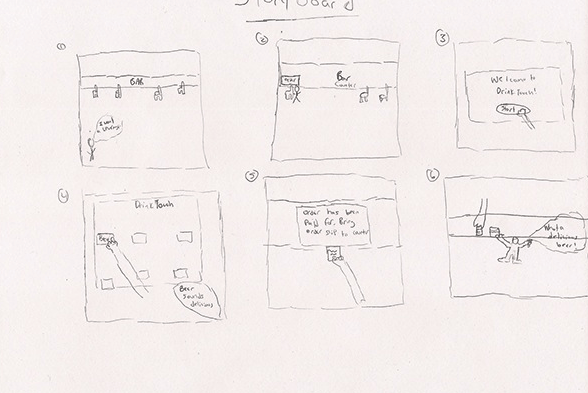 Storyboard
1
BAR
I want
a
2
Bar
Counter
3
Welcome to
DrinkTouch!
Start
4
DrinkTouch
Beer
Beer
sounds
delicious
5
Order has been
Paid for. Bring
order slip to counter
6
What a
delicious
beer!